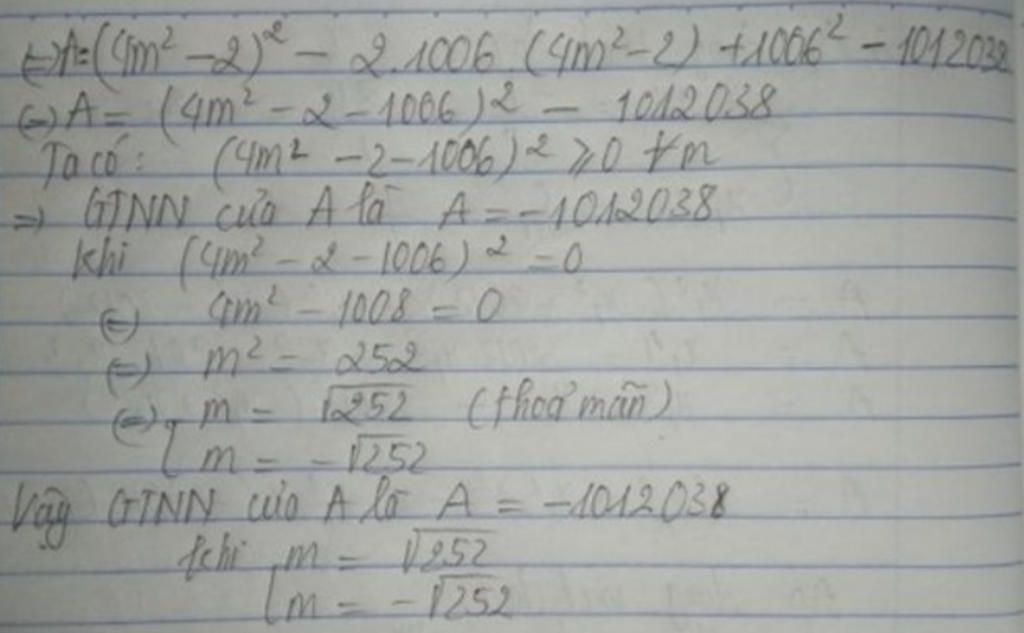 ⇔ A = (4m² - 2)² - 2.1006 (4m² - 2) + 1006² - 1012038
⇔ A = (4m² - 2 - 1006)² - 1012038
Ta có: (4m² - 2 - 1006)² ≥ 0 ∀m
⇒ GTNN của A là A = -1012038
khi (4m² - 2 - 1006)² = 0
⇔ 4m² - 1008 = 0
⇔ m² = 252
⇔ [ m = √252 (thoả mãn)
m = -√252
Vậy GTNN của A là A = -1012038
khi [ m = √252
m = -√252